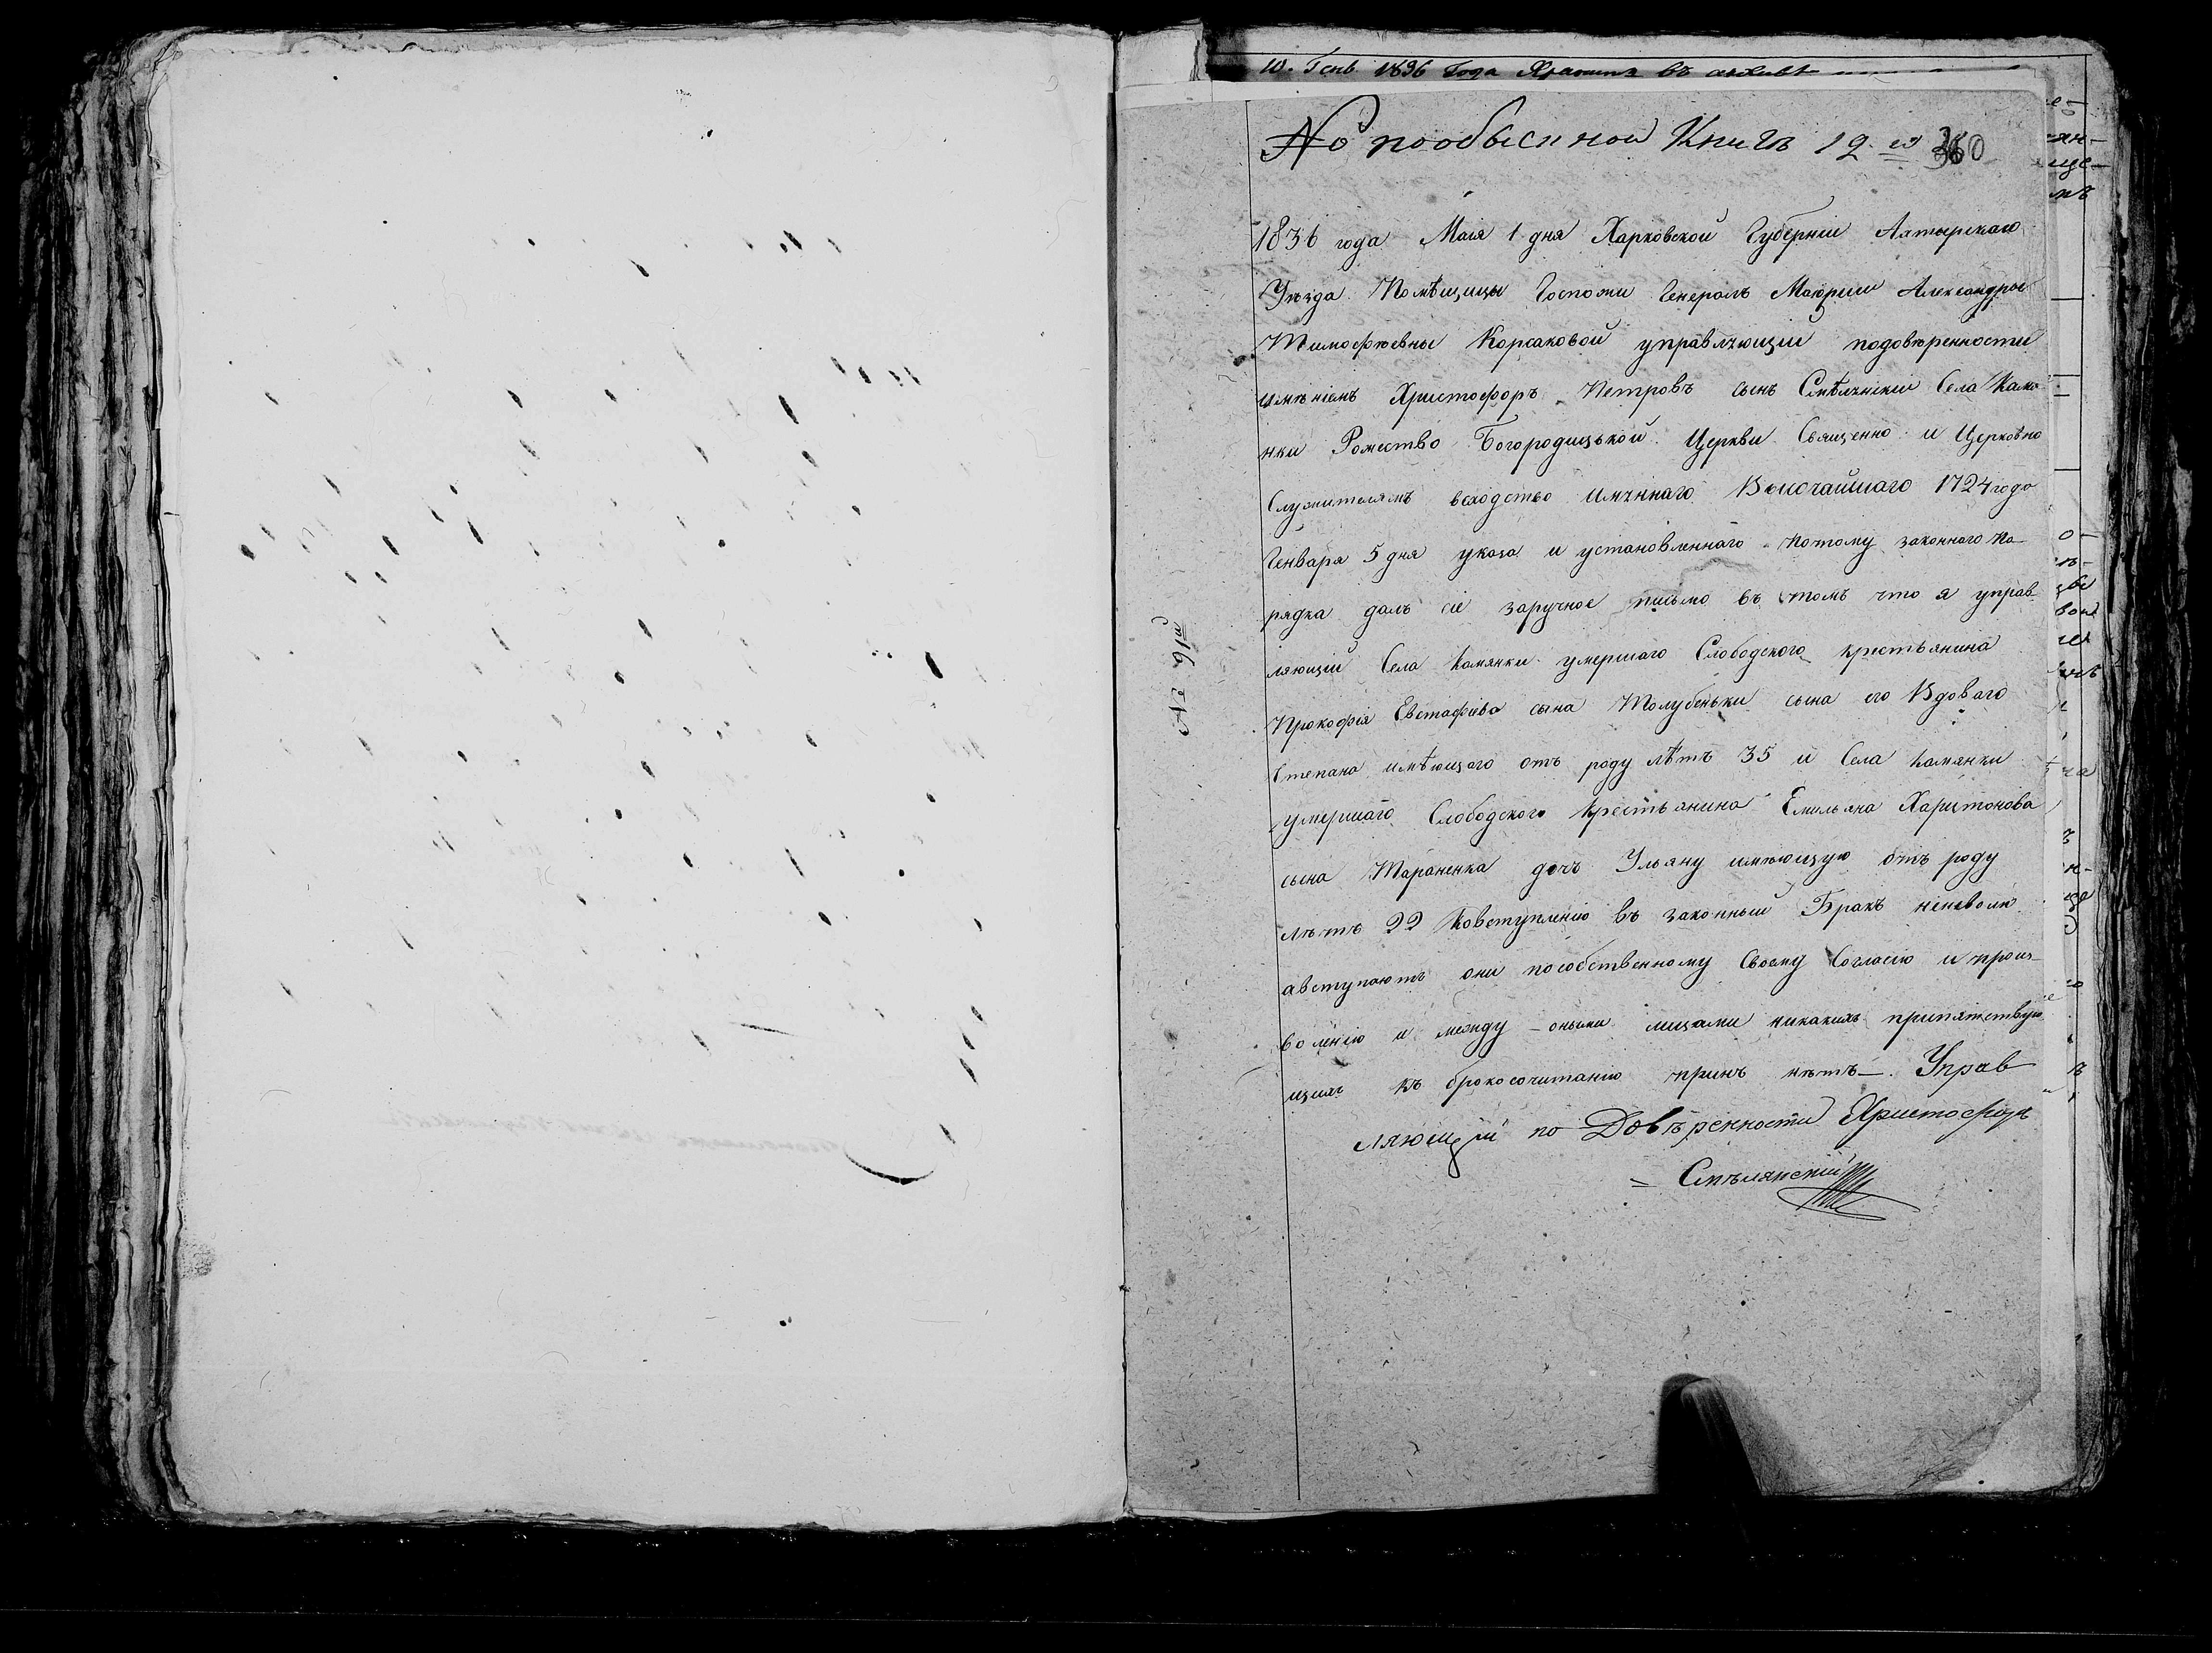 1836 Года Хранит въ архиве
№ пообыскной Книгѣ 12й 360
1836 года Мая 1 дня Харковской Губерніи Ахтырскаго
Уѣзда Помѣщицы Госпожи Генералъ Маюрши Александры
Тимофѣевны Корсаковой управляющій подовѣренности
имѣніемъ Христофоръ Петровъ сынъ Смѣлянскій Села Камя
нки Рожество Богородицькой Церкви Священно и Церковно
Служителямъ всходство имяннаго Высочайшаго 1724 года
Генваря 5 дня указа и установленнаго потому законнаго по
рядка далъ сіе заручное письмо въ томъ что я управ
ляющій Села Камянки умершаго Слободского крестьянина
Прокофія Евстафіева сына Толубеньки сына его Вдоваго
Степана имѣющаго отъ роду лѣтъ 35 и Села Камянки
умершаго Слободского крестьянина Емильяна Харитонова
сына Тараненка дочъ Ульяну имѣющую отъ роду
лѣтъ 22 Ковступленію въ законный Бракъ неневолю
авступаютъ они пособственному Своему Согласію и произ
воленію и между оными лицами никакихъ припятствую
щихъ къ бракосочитанію причъ нѣтъ. Управ
ляющій по Довѣренности Христофоръ
Смѣлянский
№ 91й